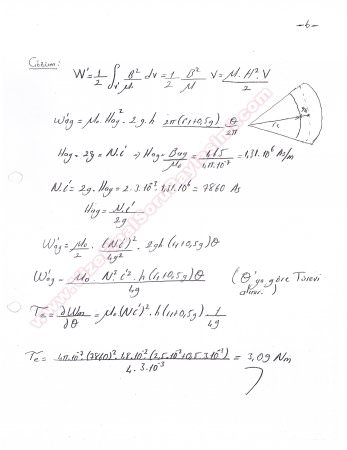 -6-
Çözüm:
W' = 1/2 ∫ B²/μ dv = 1/2 B²/μ V = μ.H².V/2
W'ag = μ₀.Hag² . 2.g.h 2π(r₁+0,5g)/2 θ/2π
r₁
Hag.2g = N.i → Hag = Bag/μ₀ = 1,65/4π.10⁻⁷ = 1,31.10⁶ As/m
N.i = 2g.Hag = 2.3.10⁻³.1,31.10⁶ = 7860 As
Hag = N.i/2g
W'ag = μ₀/2 . (Ni)²/4g² . 2gh(r₁+0,5g)θ
W'ag = μ₀ . N².i².h(r₁+0,5g)θ/4g (θ'ya göre Türevi
alınır.)
Te = ∂Wm/∂θ = μ₀.(Ni)².h(r₁+0,5g) 1/4g
Te = 4π.10⁻⁷(7860)². .10⁻³ ( .10⁻³+0,5.3.10⁻³)/4.3.10⁻³ = 3,09 Nm